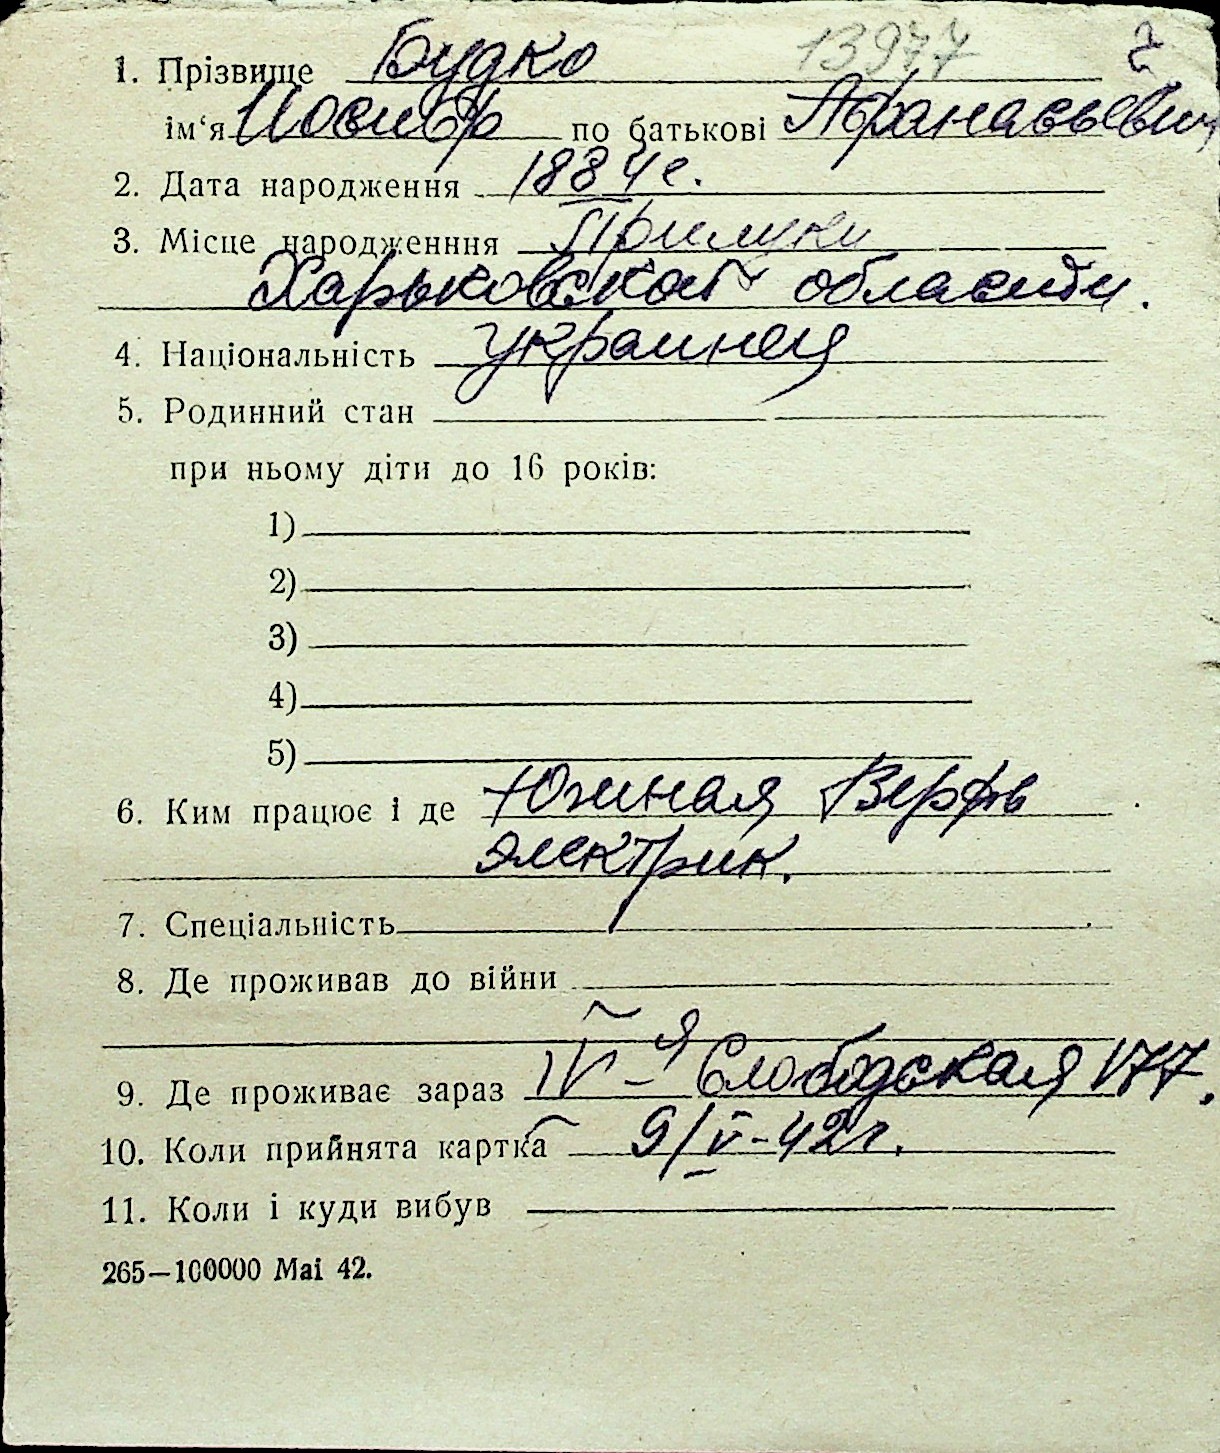 13977
1. Прізвище Будко
ім‘я Иосиф по батькові Афанасьевич
2. Дата народження 1884 г.
3. Місце народженння Прилуки
Харьковской области.
4. Національність украинец
5. Родинний стан
при ньому діти до 16 років:
1)
2)
3)
4)
5)
6. Ким працює і де Южная Верфь
электрик.
7. Спеціальність
8. Де проживав до війни
9. Де проживає зараз IV-я Слободская 177.
10. Коли прийнята картка 9/V-42г.
11. Коли і куди вибув
265—100000 Mai 42.